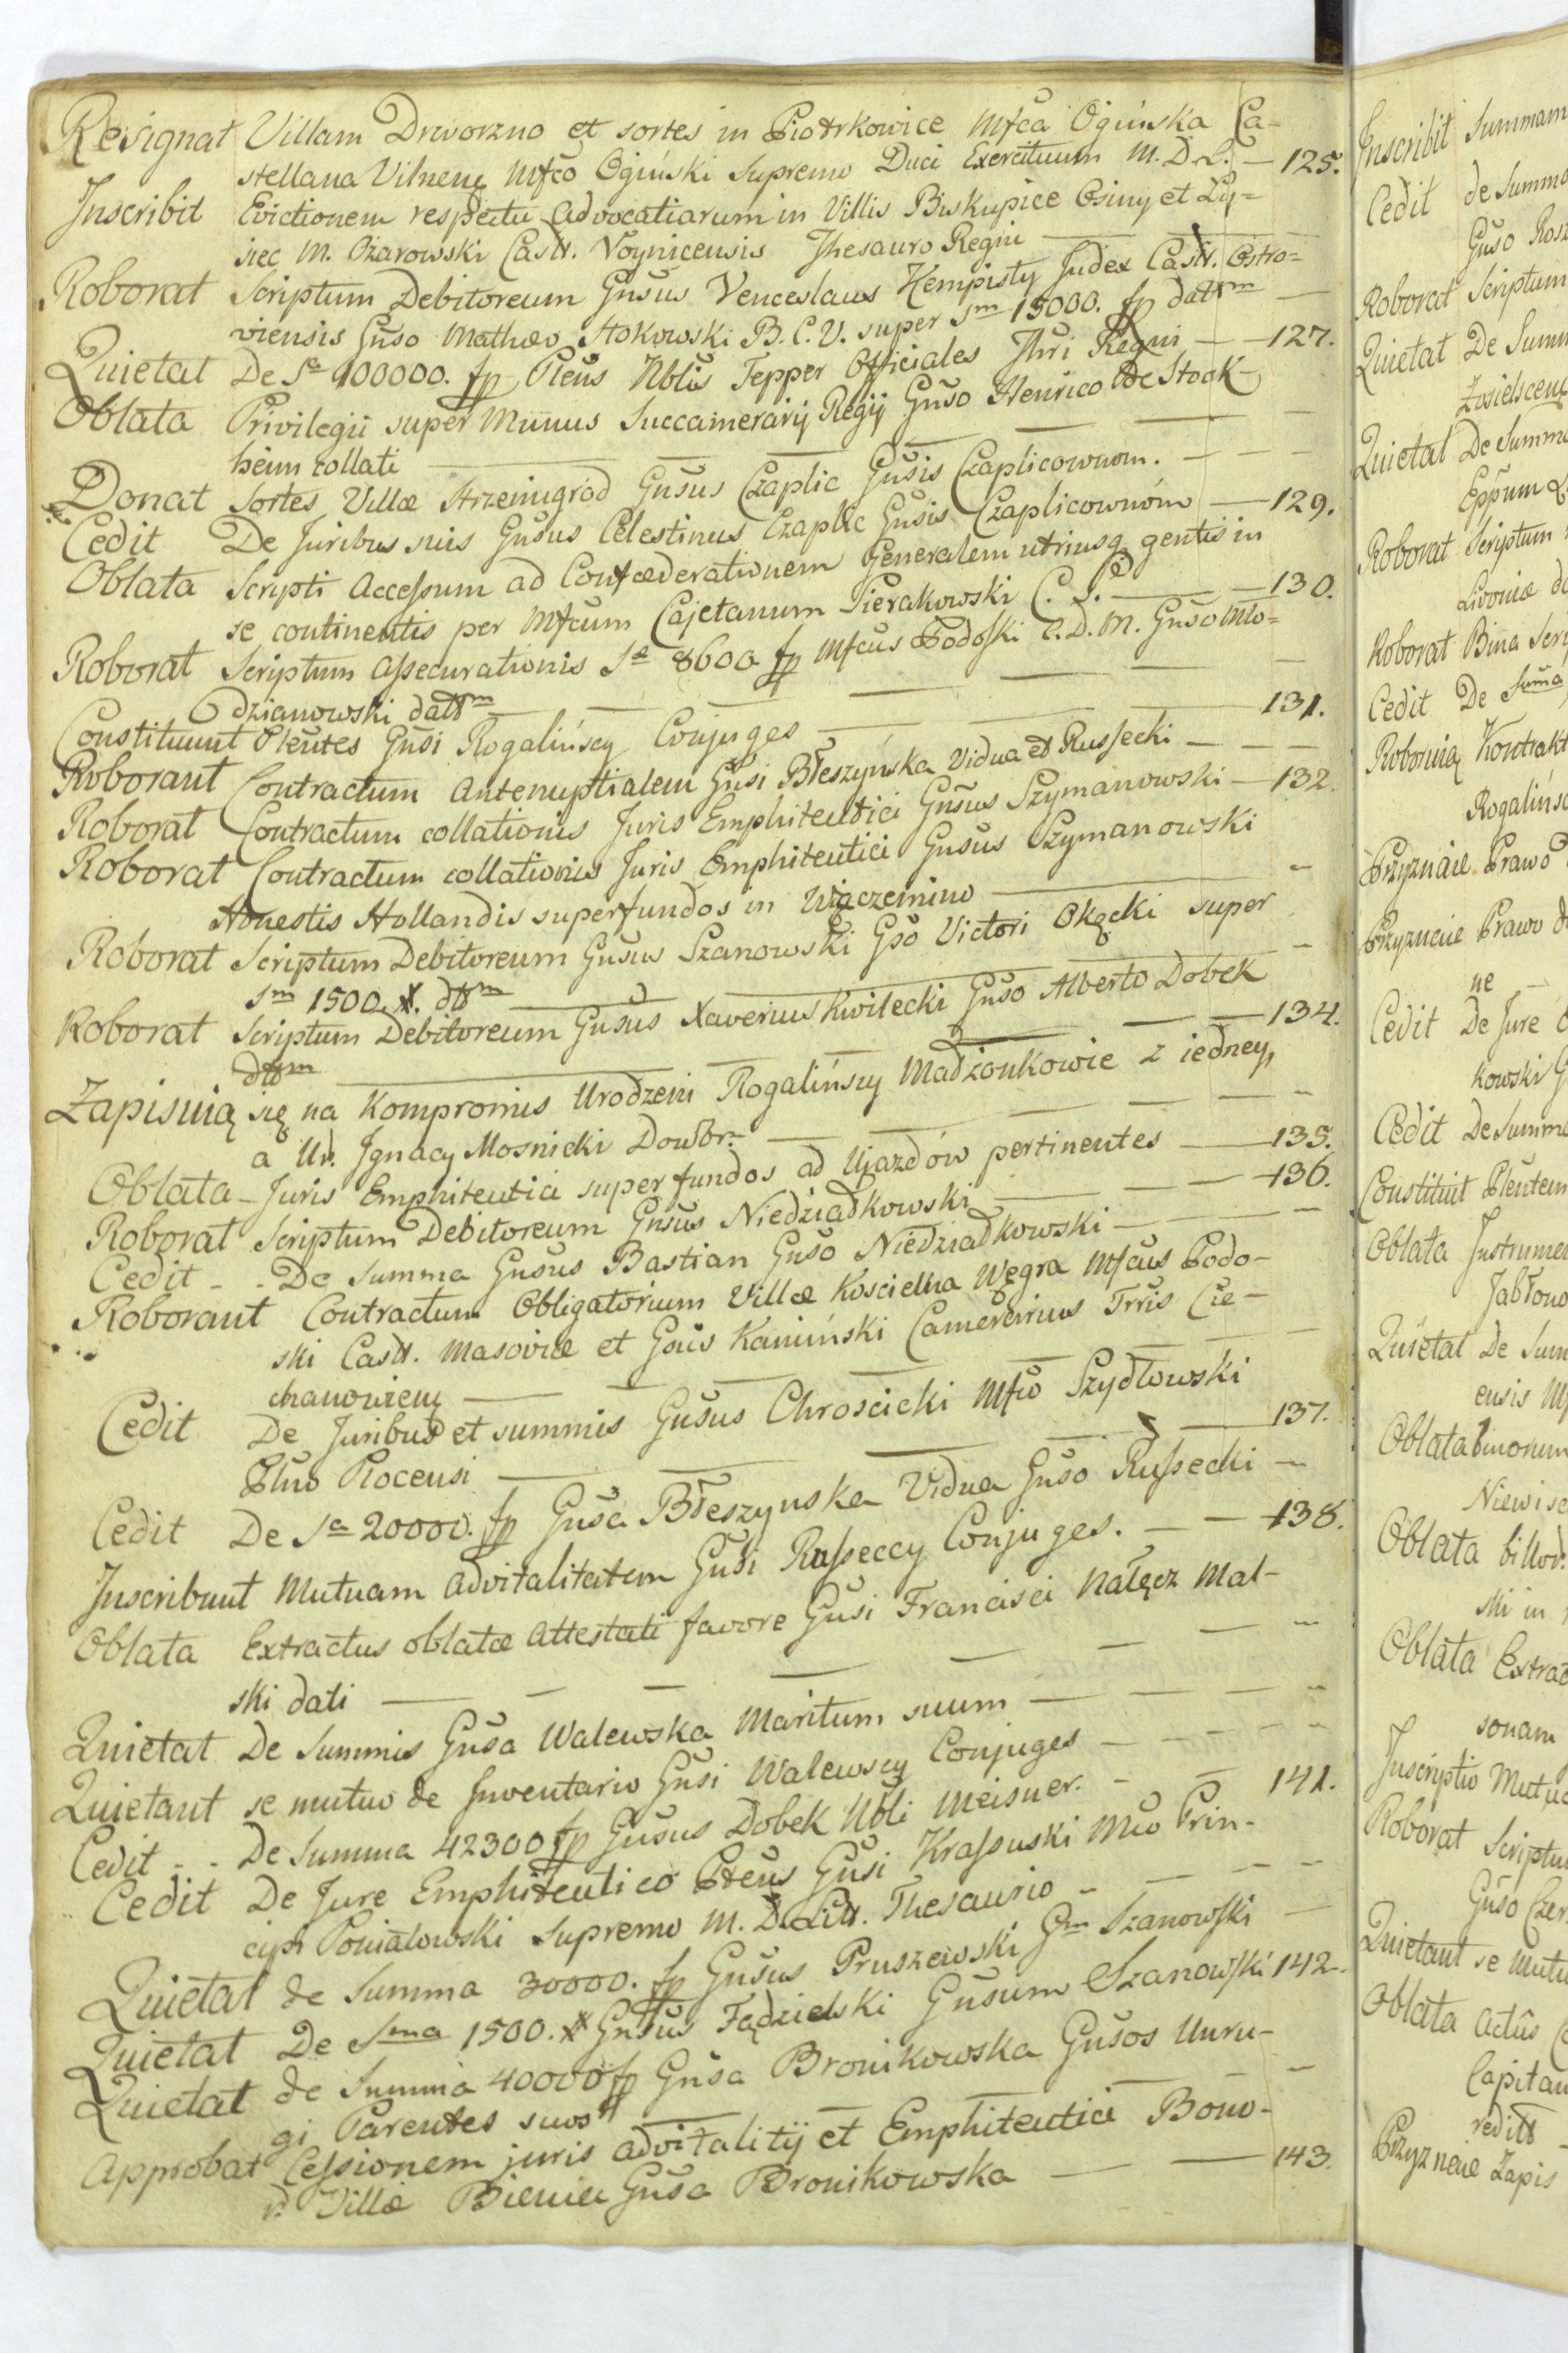 Resignat Villam Drworzno et sortes in Piotrkowice Mfca Ogińska Ca-
stellana Vilnens Mfco Ogiński Supremo Duci Exercituum M.D.L. — 125.
Inscribit Evictionem respectu Advocatiarum in Villis Biskupice Osiny et Ły=
siec M. Ożarowski Castr. Voynicensis Thesauro Regni —
Roborat Scriptum Debitoreum Gnsus Venceslaus Kempisty Judex Castr. Ostro=
viensis Gnso Mathæo Stokowski B.C.V. super sm 15000. fp dattm —
Quietat De Sa 100000. fp Pleus Nblis Tepper Officiales Thri Regni — 127.
Oblata Privilegii super Munus Succamerarij Regij Gnso Henrico de Stock-
heim collati —
Donat Sortes Villæ Strzeinigrod Gnsus Czaplic Gnsis Czaplicownom. —
Cedit De Juribus suis Gnsus Celestinus Czaplic Gnsis Czaplicownóm — 129.
Oblata Scripti Accessum ad Confæderationem Generalem utriusq gentis in
se continentis per Mfcum Cajetanum Sierakowski C. S. — 130.
Roborat Scriptum Assecurationis Sa 8600 fp Mfcus Podoski C.D.M. Gnso Mło=
dzianowski dattm —
Constituunt Pleutes Gnsi Rogalińscy Conjuges — 131.
Roborant Contractum Antenuptialem Gnsi Błeszyńska Vidua et Russecki —
Roborat Contractum collationis Juris Emphiteutici Gnsus Szymanowski — 132.
Roborat Contractum collationis Juris Emphiteutici Gnsus Szymanowski
Honestis Hollandis super fundos in Wiączemino —
Roborat Scriptum Debitoreum Gnsus Szanowski Gso Victori Okęcki super
sm 1500. #. dttm —
Roborat Scriptum Debitoreum Gnsus Xaverius Kwilecki Gnso Alberto Dobek
dttm — 134.
Zapisuią się na Kompromis Urodzeni Rogalińscy Madżonkowie z iedney,
a Ur. Jgnacy Mosnicki Doubr. —
Oblata Juris Emphiteutici super fundos ad Ujazdów pertinentes — 135.
Roborat Scriptum Debitoreum Gnsus Niedziadkowski — 136.
Cedit - - De Summa Gnsus Bastian Gnso Niedziadkowski —
Roborant Contractum Obligatorium Villæ Koscielna Węgra Mfcus Podo-
ski Castr. Masoviæ et Gnsus Kamiński Camerarius Trris Cie-
chanoviens —
Cedit De Juribus et summis Gnsus Chroscicki Mfco Szydłowski
Pltno Plocensi — 137.
Cedit De Sa 20000. fp Gnsa Błeszynska Vidua Gnso Russecki —
Inscribunt Mutuam Advitalitatem Gnsi Russeccy Conjuges. — 138.
Oblata Extractus oblatæ Attestati favore Gnsi Francisci Nałęcz Mal-
ski dati —
Quietat De Summis Gnsa Walewska Maritum suum —
Quietant se mutuo de Inventario Gnsi Walewscy Conjuges —
Cedit - - De Summa 42300 fp Gnsus Dobek Nbli Meisner. — 141.
Cedit De Jure Emphiteutico Pleus Gnsi Krassuski Mco Prin-
cipi Poniatowski Supremo M.D.Litt. Thesaurio —
Quietat de Summa 30000. fp Gnsus Pruszewski Gm Szanowski —
Quietat De Sma 1500. # Gnsus Fądzielski Gnsum Szanowski 142.
Quietat de Summa 40000 fp Gnsa Bronikowska Gnsos Unru-
gi Parentes suos —
Approbat Cessionem juris advitalitij et Emphiteutici Bono-
r. Villæ Bieniec Gnsa Bronikowska — 143.
Inscribit Summam
Cedit de Summa
Gnso
Roborat Scriptum
Quietat De Summ
Quietat De Summa
Eppum
Roborat Scriptum
Livoniæ
Roborat Bina Scri
Cedit De Suma
Roboruią Kontrakt
Rogalińsc
Przyznaie Prawo
Przyznaie Prawo
ne
Cedit De Jure
kowski
Cedit De Summa
Constituit Pleutem
Oblata Instrumen
Jabłono
Quietat De Sum
ensis
Oblata binorum
Oblata
ski in
Oblata Extrac
sonam
Inscriptio Mutua
Roborat Scriptu
Gnso
Quietant se mutu
Oblata Actûs
Capitan
Przyznaie Zapis